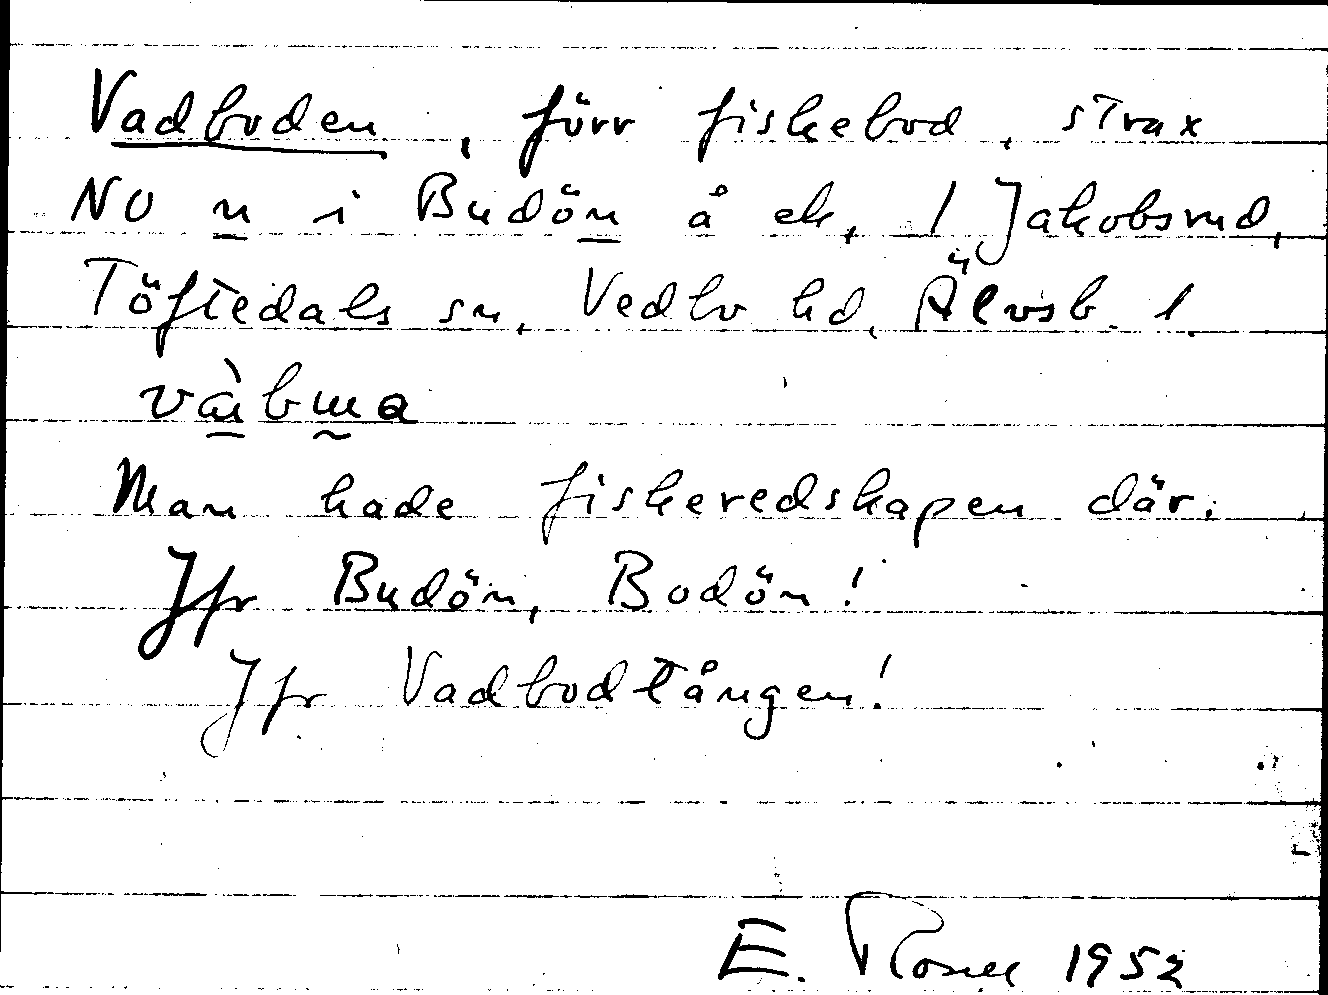 Vadboden, förr fiskebod, strax
NO n i Budön å ek. 1 Jakobsrud,
Töftedals sn, Vedbo hd, Älvsb. l.
Man hade fiskeredskapen där.
Jfr Budön, Bodön!
Jfr Vadbodtången!
E. 1952